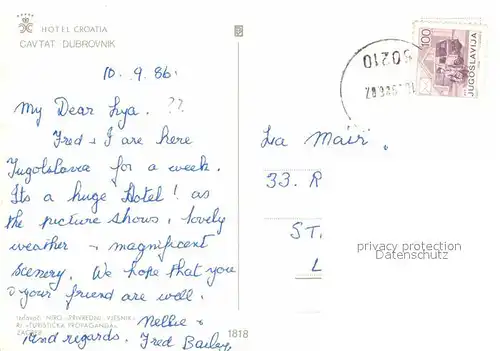 HOTEL CROATIA
CAVTAT DUBROVNIK
10.9.86.
My Dear Lya. ??
Fred & I are here
Jugoslavia for a week.
Its a huge Hotel! as
the picture shows, lovely
weather & magnificent
scenery. We hope that you
& your friend are well.
Izdavači NIRO »PRIVREDNI VJESNIK«
RJ »TURISTIČKA PROPAGANDA«
ZAGREB
Nellie &
Kind regards. Fred Bailey
1818
100
JUGOSLAVIJA
50210
La Mair.
33. R
ST.
L
privacy protection
Datenschutz